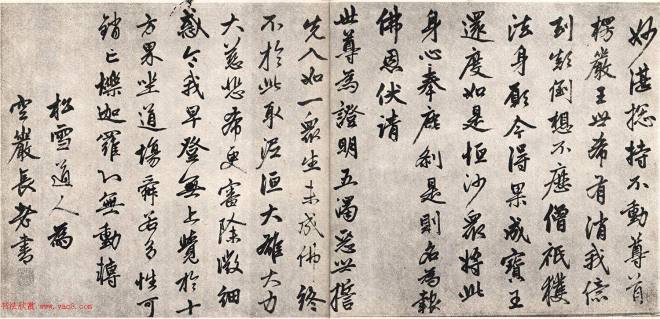 妙湛捴持不動尊首
楞嚴王世希有消我億
刼顛倒想不歷僧祇獲
法身願今得果成寶王
還度如是恒沙衆將此
身心奉塵刹是則名為報
佛恩伏請
世尊為證明五濁惡世誓
先入如一衆生未成佛終
不於此取泥洹大雄大力
大慈悲希更審除微細
惑令我早登無上覺於十
方界坐道場舜若多性可
銷亡爍迦羅心無動轉
松雪道人為
空巖長老書
书法欣赏 www.yac8.com